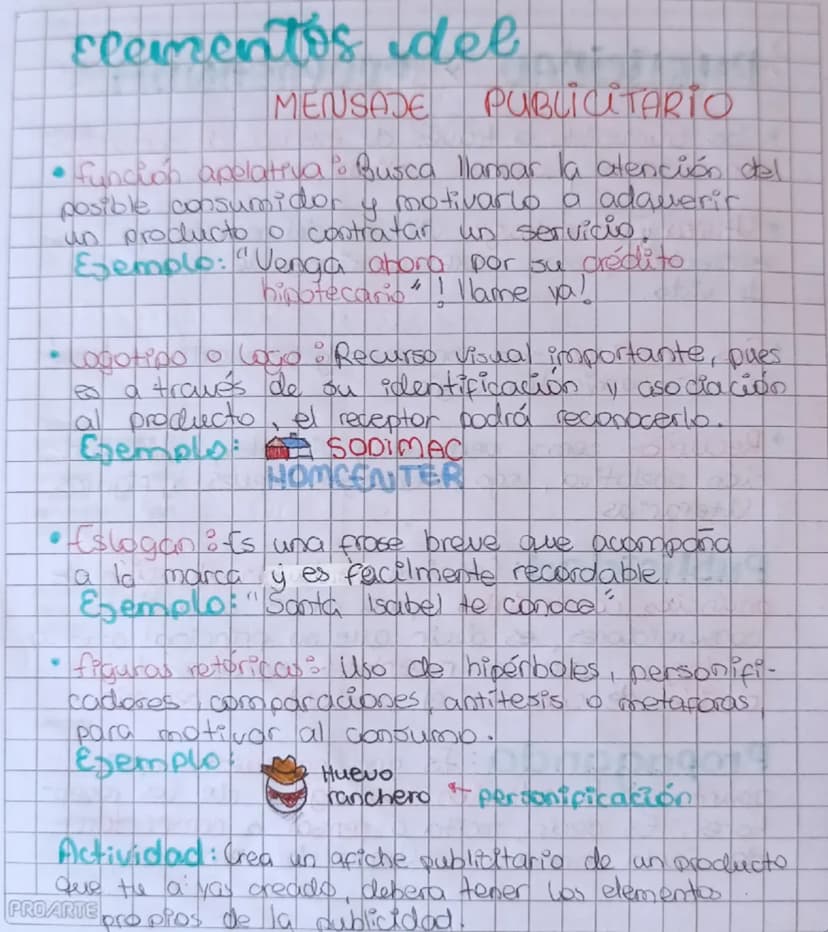 Elementos del
MENSAJE PUBLICITARIO
• función apelativa: Busca llamar la atención del
posible consumidor y motivarlo a adquerir
un producto o contratar un servicio.
Ejemplo: "Venga ahora por su crédito
hipotecario" ! llame ya!
• Logotipo o Logo: Recurso visual importante, pues
es a través de su identificación y asociación
al producto, el receptor podrá reconocerlo.
Ejemplo: SODIMAC
HOMCENTER
• Eslogan: Es una frase breve que acompaña
a la marca y es facilmente recordable.
Ejemplo: "Santa Isabel te conoce"
• figuras retóricas: Uso de hipérboles, personifi-
cadores, comparaciones, antítesis o metaforas,
para motivar al consumo.
Ejemplo: Huevo
ranchero ← personificación
Actividad: Crea un afiche publicitario de un producto
que tu a yas creado, debera tener los elementos
PROARTE propios de la publicidad.